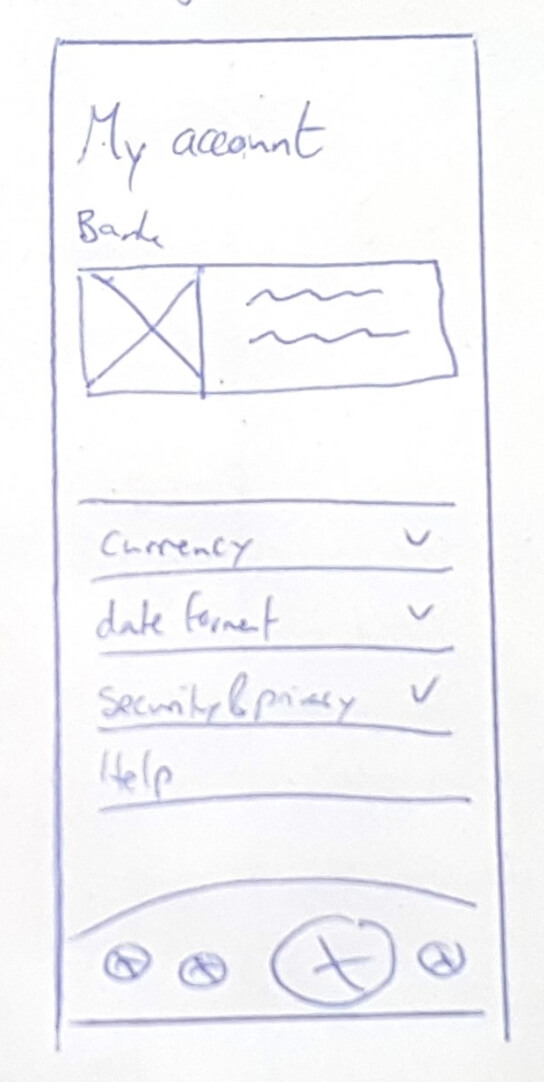 My account
Bank
Currency
date format
Security & privacy
Help